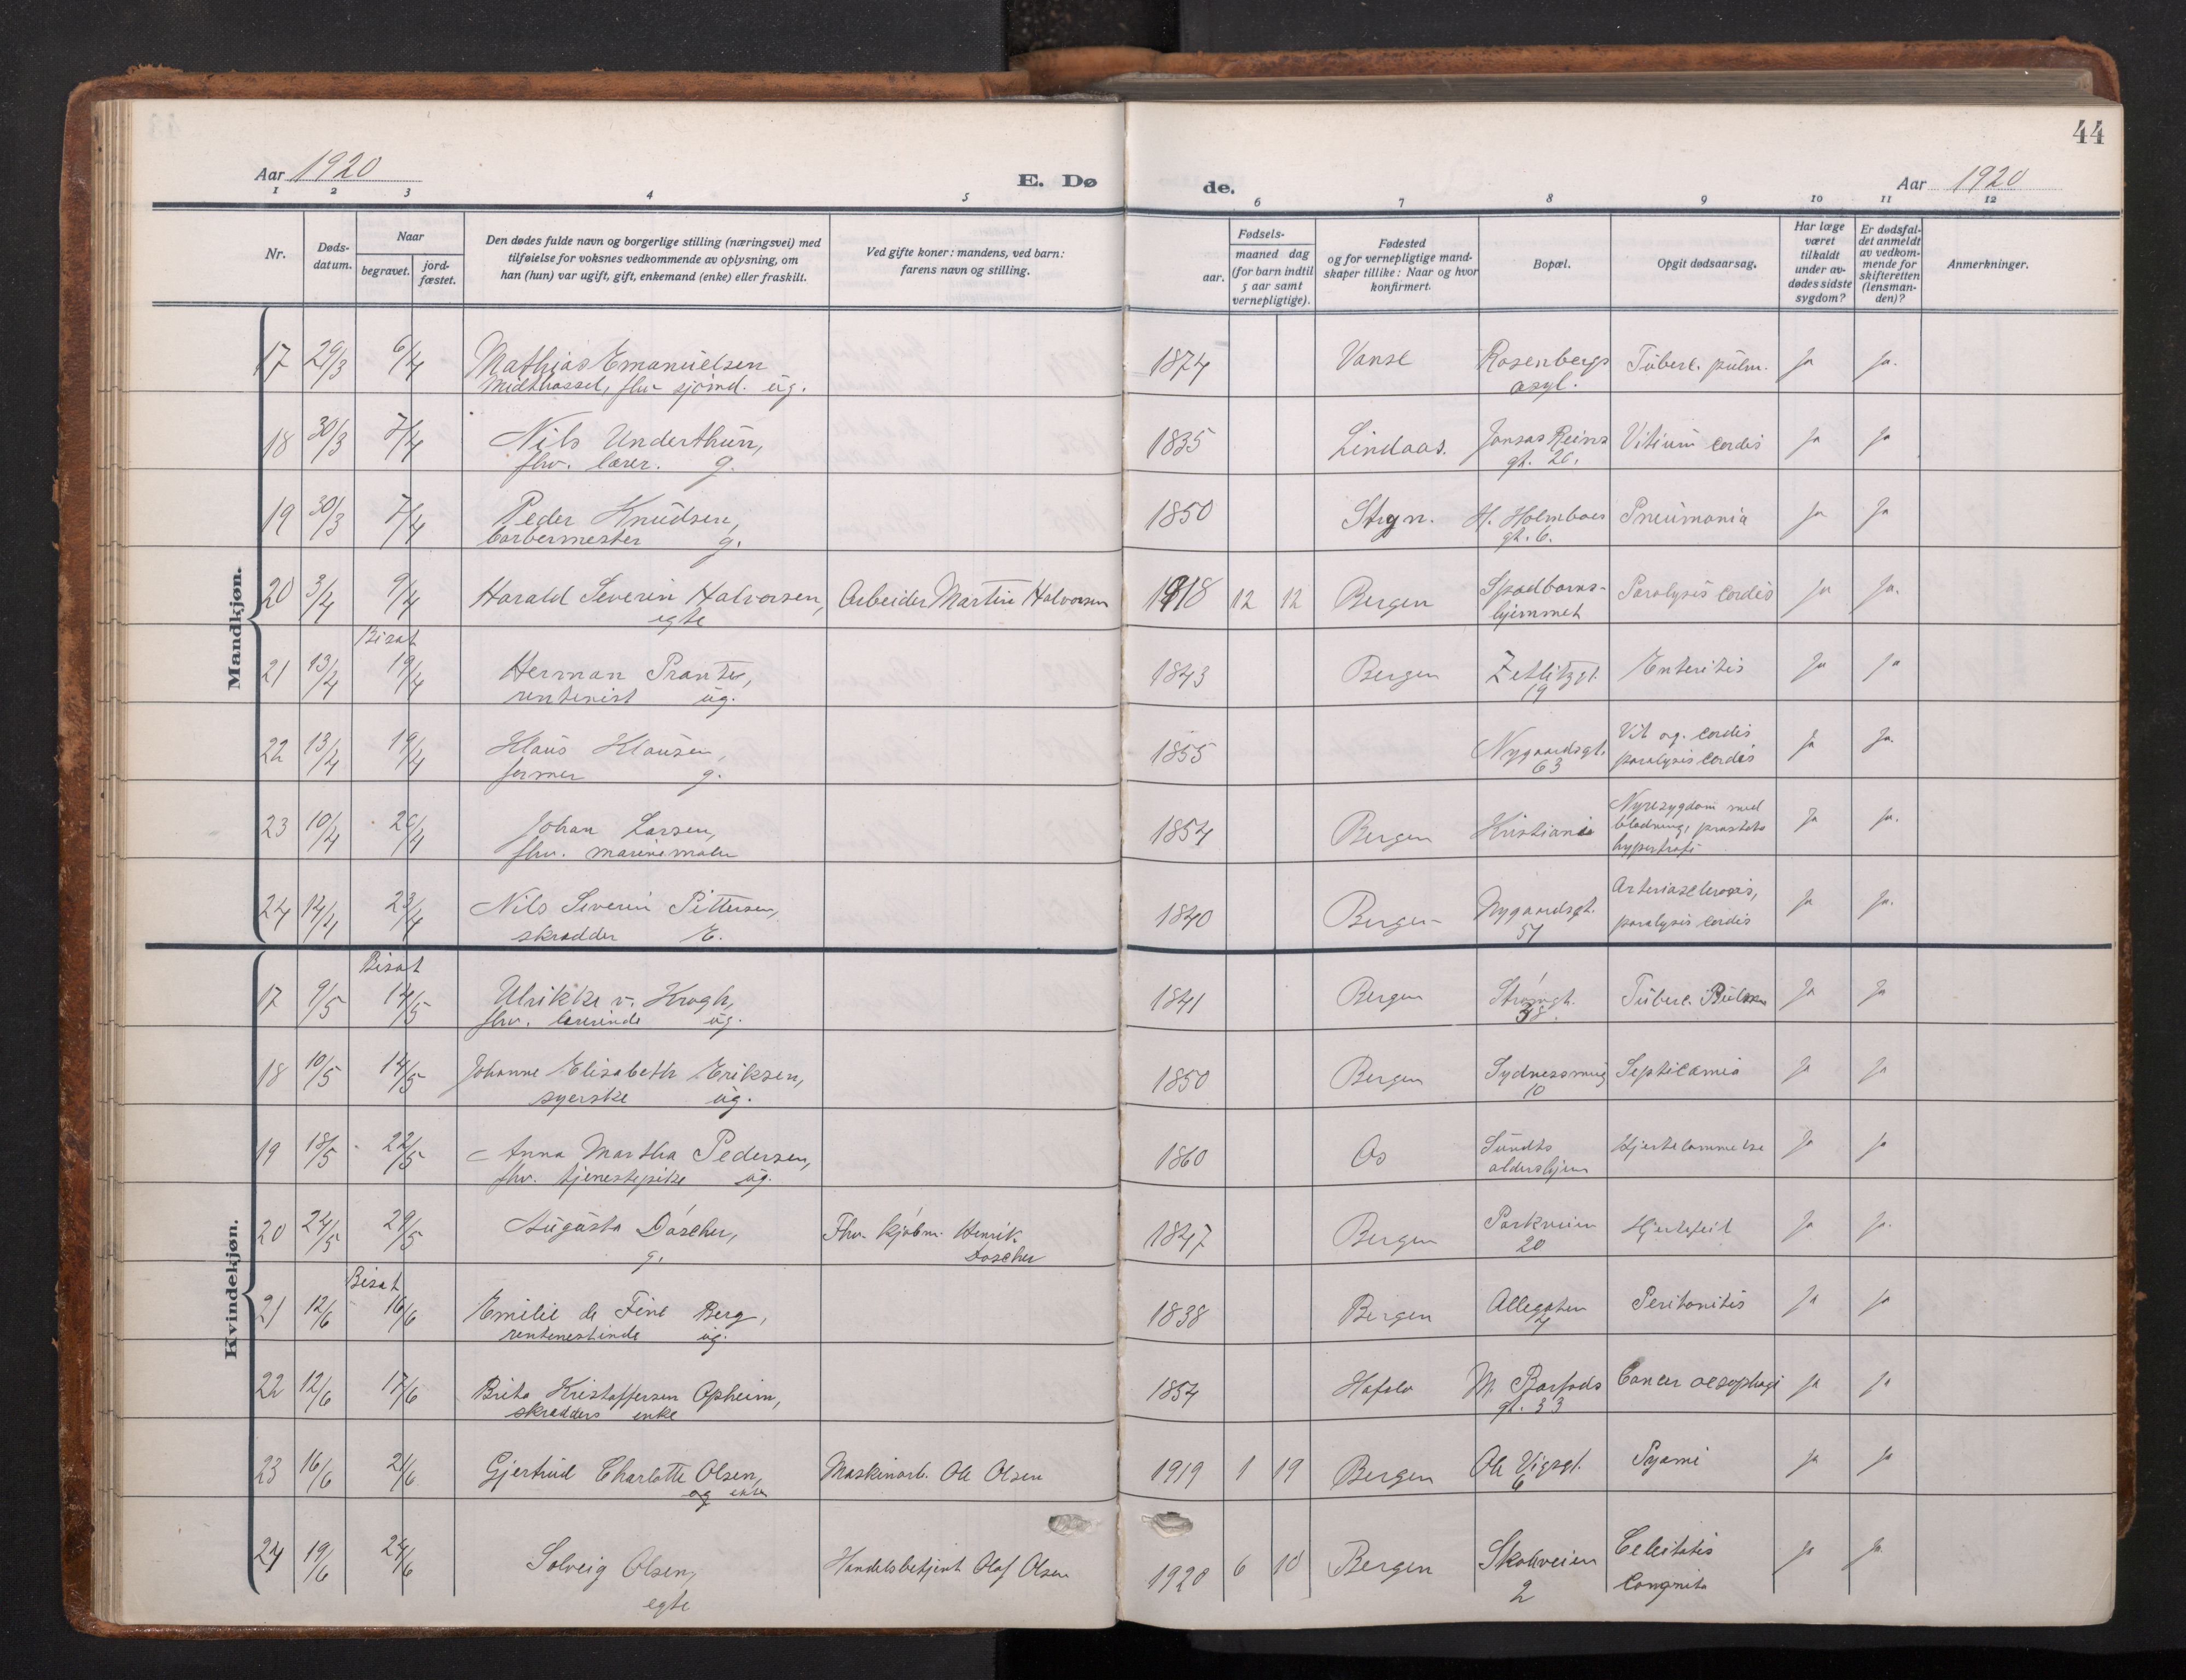 44
Aar 1920
E. Dø
de.
Aar 1920
1 2 3 4 5 6 7 8 9 10 11 12
Nr.
Døds-
datum.
Naar
begravet.
jord-
fæstet.
Den dødes fulde navn og borgerlige stilling (næringsvei) med
tilføielse for voksnes vedkommende av oplysning, om
han (hun) var ugift, gift, enkemand (enke) eller fraskilt.
Ved gifte koner: mandens, ved barn:
farens navn og stilling.
Fødsels-
aar.
maaned dag
(for barn indtil
5 aar samt
vernepligtige).
Fødested
og for vernepligtige mand-
skaper tillike: Naar og hvor
konfirmert.
Bopæl.
Opgit dødsaarsag.
Har læge
været
tilkaldt
under av-
dødes sidste
sygdom?
Er dødsfal-
det anmeldt
av vedkom-
mende for
skifteretten
(lensman-
den)?
Anmerkninger.
Mandkjøn.
17 29/3 6/4 Mathias Emanuelsen 1874 Vanse Rosenbergs Tuberc. pulm. Ja Ja.
Midthassel, fhv sjømd. ug. asyl.
18 30/3 7/4 Nils Underthun, 1835 Lindaas. Jonsas Reins Vitium cordis Ja Ja
fhv. lærer. g. gt. 20.
19 30/3 7/4 Peder Knudsen, 1850 Stryn. H. Holmboes Pneumonia Ja Ja
barbermester g. gt. 6.
20 3/4 9/4 Harald Severin Halvorsen, Arbeider Martin Halvorsen 1918 12 12 Bergen Spædbarns- Paralysis cordis Ja Ja.
egte hjemmet
Bisat
21 13/4 19/4 Herman Prante, 1843 Bergen Zetlitzgt. Enteritis Ja Ja
rentenist ug. 19
22 13/4 19/4 Klaus Klausen, 1855 Nygaardsgt. Vit og. cordis Ja Ja.
former g. 63 paralysis cordis
23 10/4 20/4 Johan Larsen, 1854 Bergen Kristiania Nyresygdom med Ja Ja.
fhv. marinemaler blødning, prostata
hypertrofi
24 14/4 23/4 Nils Severin Pettersen, 1840 Bergen Nygaardsgt. Arteriasclerosis, Ja Ja.
skrædder E. 51 paralysis cordis
Kvindekjøn.
Bisat
17 9/5 14/5 Ulrikke v. Krogh, 1841 Bergen Strømgt. Tuberc. Pulm Ja Ja
fhv. lærerinde ug. 38.
18 10/5 14/5 Johanne Elisabeth Eriksen, 1850 Bergen Sydnessmug Septicæmia Ja Ja
syerske ug. 10
19 18/5 22/5 Anna Martha Pedersen, 1860 Os Sundts Hjertelammelse Ja Ja
fhv. tjenestepike ug. aldershjem
20 24/5 29/5 Augusta Döscher, Fhv. kjøbm. Henrik 1847 Bergen Parkveien Hjertefeil Ja Ja.
g. Döscher 20
Bisat
21 12/6 16/6 Emilie de Fine Berg, 1838 Bergen Allegaten Peritonitis Ja Ja
rentenistinde ug. 4
22 12/6 17/6 Brita Kristoffersen Opheim, 1854 Hafslo M. Barfods Cancer oesophagi Ja Ja
skrædders enke gt. 33
23 16/6 21/6 Gjertrud Charlotte Olsen, Maskinarb. Ole Olsen 1919 1 19 Bergen Ole Vigsgt. Pyæmi Ja Ja
6
24 19/6 24/6 Solveig Olsen, Handelsbetjent Olaf Olsen 1920 6 10 Bergen Skoleveien Ja Ja.
egte 2